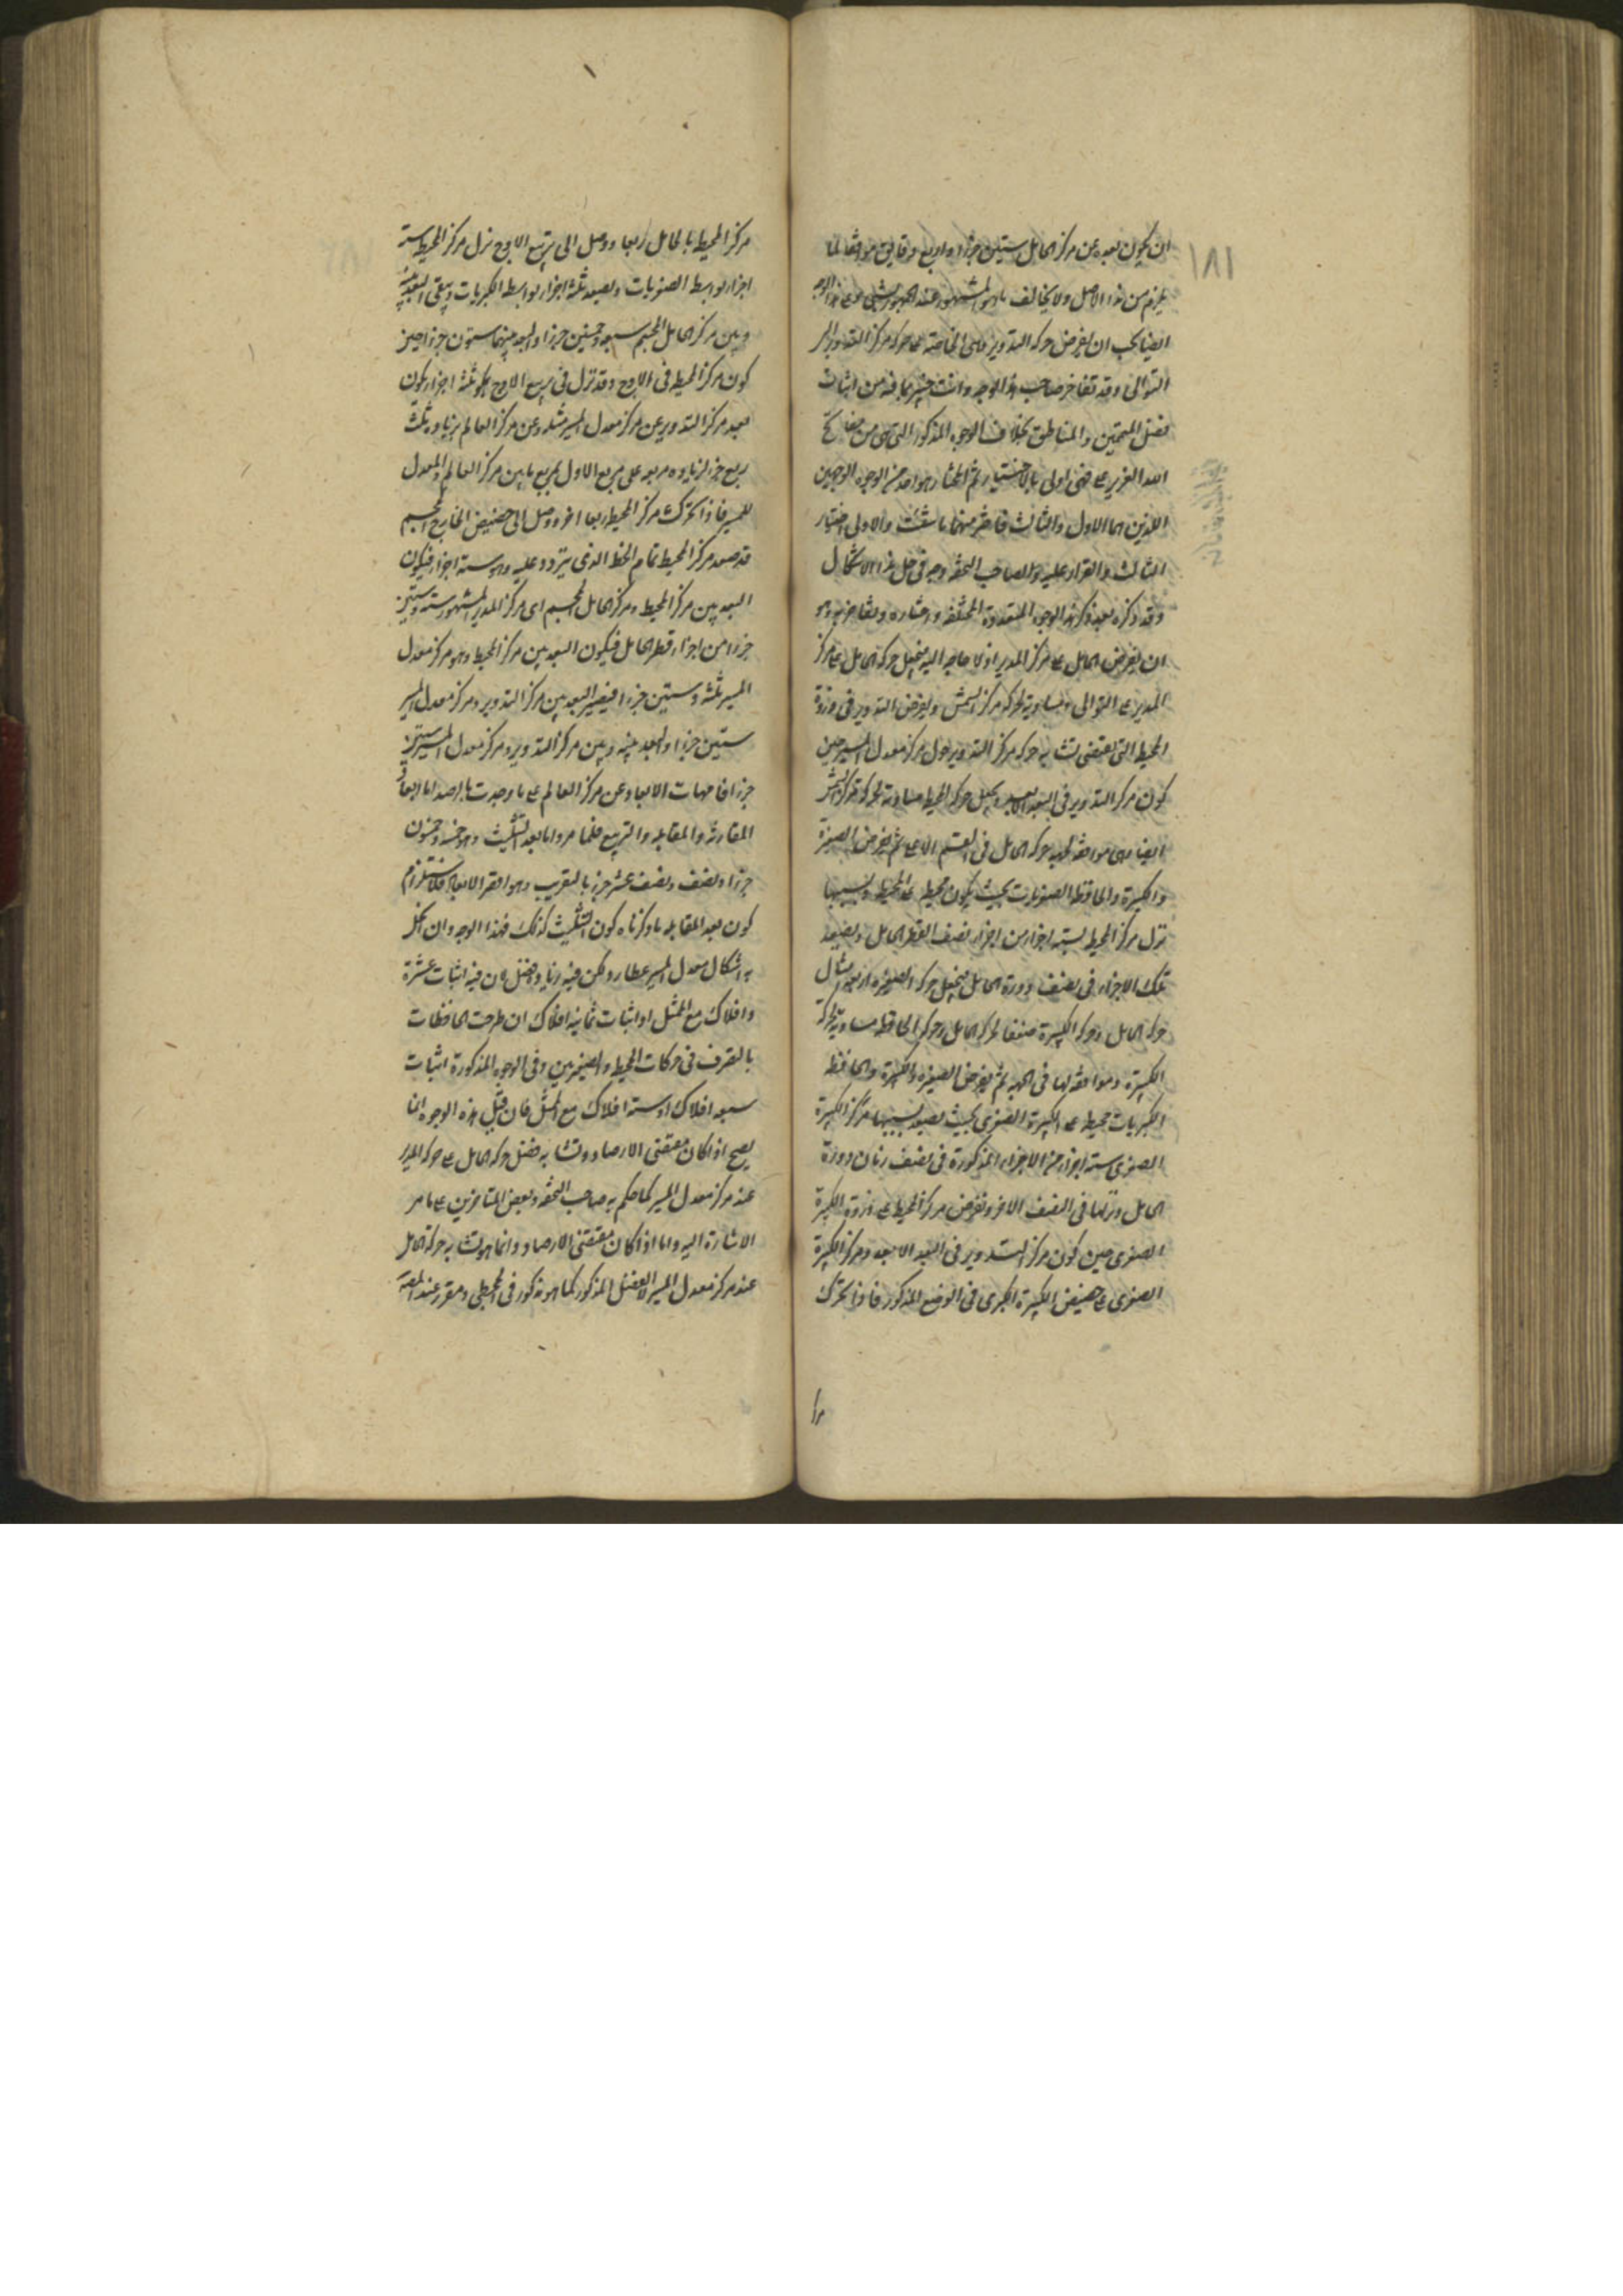 ١٨١
ان يكون بعده عن مركز الحامل ستين جزءا واربع دقايق موافقا لما
يلزم من هذا الاصل ولا يخالف ما هو المشهور عند الجمهور بشي وعلى هذا الوجه
ايضا يجب ان يفرض حركة التدوير وهى الخاصة على حركة مركز التدوير الى
التوالى وقد تفاخر صاحب هذا الوجه وانت خبير بما فيه من اثبات
فضل المتممين والمناطق بخلاف الوجوه المذكورة التى هى من مفاتح
الله العزيز على فهى اولى بالاختيار ثم المختار هو احد من الوجوه الوجهين
اللذين هما الاول والثالث فاختر منهما ما شئت والاولى اختيار
الثالث والقرار عليه ولصاحب التحفه وجه فى حل هذا الاشكال
وقد ذكره بعد ذكر هذه الوجوه المتعددة المختلفه واختاره وتفاخر به وهو
ان يفرض الحامل على مركز المدير اذ لا حاجة اليه فيجعل حركة الحامل على مركز
المدير على التوالى مساوية لحركة مركز الشمس ويفرض التدوير فى ذروة
المحيط التى يقتضى تشابه حركة مركز التدوير حول مركز معدل المسير حين
كون مركز التدوير فى البعد الابعد ويجعل حركة المحيط مساوية لحركة مركز الشمس
ايضا وهى موافقة لجهة حركة الحامل فى القسم الاعلى ثم يفرض الصغيرة
والكبيرة والحافظة الصغريات بحيث يكون محيطه على المحيط وبسببها
نزل مركز المحيط بستة اجزاء من اجزاء نصف القطر الحامل ويصعد
تلك الاجزاء فى نصف دورة الحامل فيجعل حركة الصغيرة اربعة امثال
حركة الحامل وحركة الكبيرة ضعفا لحركة الحامل وحركة الحافظه مساوية لحركة
الكبيرة وموافقة لها فى الجهة ثم يفرض الصغيرة والكبيرة والحافظة
الكبريات محيطه على الكبيرة الصغرى بحيث يصعد بسببها مركز الكبيرة
الصغرى ستة اجزاء من الاجزاء المذكورة فى نصف زمان دورة
الحامل ونزلها فى النصف الاخر ونفرض مركز المحيط على ذروة الكبيرة
الصغرى حين كون مركز التدوير فى البعد الابعد ومركز الكبيرة
الصغرى على حضيض الكبيرة الكبرى فى الوضع المذكور فاذا تحرك
مركز المحيط بالحامل ربعا ووصل الى تربيع الاوج نزل مركز المحيط ستة
اجزاء بواسطة الصغريات ويصعد ثلثة اجزاء بواسطة الكبريات ويبقى البعد بينه
وبين مركز الحامل المجسم سبعة وخمسين جزءا والبعد بينهما ستون جزءا حين
كون مركز المحيط فى الاوج وقد نزل فى تربيع الاوج بكو ثلثة اجزاء يكون
بعد مركز التدوير عن مركز معدل المسير مثله وعن مركز العالم بزيادة ثلث
ربع جزء لزيادة مربعه على مربع الاول بمربع ما بين مركز العالم والمعدل
للمسير فاذا تحرك مركز المحيط ربعا اخر ووصل الى حضيض الخارج المجسم
قد صعد مركز المحيط تمام الخط الذى يتردد عليه وهو ستة اجزاء فيكون
البعد بين مركز المحيط ومركز الحامل المجسم اى مركز المدير المشهور ستة وستين
جزءا من اجزاء قطر الحامل فيكون البعد بين مركز المحيط وهو مركز معدل
المسير ثلثة وستين جزءا فيصير البعد بين مركز التدوير ومركز معدل المسير
ستين جزءا والبعد بينه وبين مركز التدوير ومركز معدل المسير ستين
جزءا فامهات الابعاد عن مركز العالم على ما وجدت بالرصد اما ابعاد
المقارنة والمقابلة والتربيع فلما مر واما بعد التثليث وهو خمسة وخمسون
جزءا ونصف ونصف عشر جزء بالتقريب وهو اقصر الابعاد فلاستلزام
كون بعد المقابلة ما ذكرناه كون التثليث كذلك فهذا الوجه وان انحل
به اشكال معدل المسير عطارد ولكن فيه زيادة فضل لان فيه اثبات عشرة
وافلاك مع الممثل او اثبات ثمانية افلاك ان طرحت الحافظات
بالتصرف فى حركات المحيط والصغيرين وفى الوجوه المذكورة اثبات
سبعة افلاك او ستة افلاك مع الممثل فان قيل هذه الوجوه انما
يصح اذا كان مقتضى الارصاد وتشابه فضل حركة الحامل على حركة المدير
عند مركز معدل المسير كما حكم به صاحب التحفه وبعض المتاخرين على ما مر
الاشارة اليه واما اذا كان مقتضى الارصاد وانما هو تشابه حركة الحامل
عند مركز معدل المسير لا لفضل المذكور كما هو مذكور فى المجسطى ومقرر عند